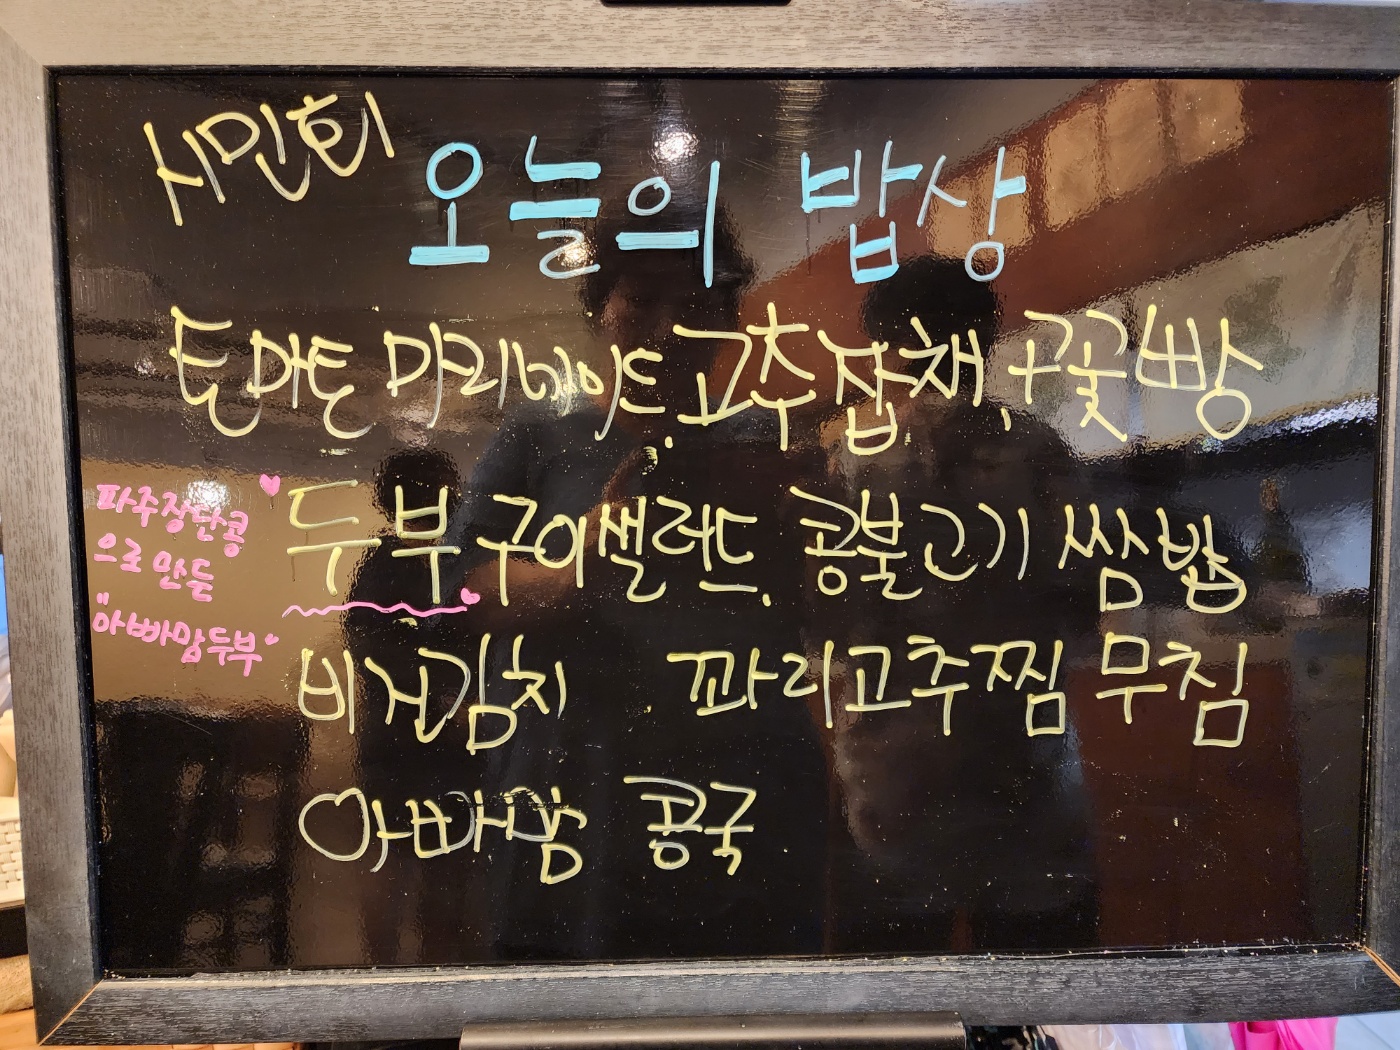 시민회
오늘의 밥상
토마토 마리네이드, 고추잡채, +꽃빵
두부구이샐러드, 콩불고기 쌈밥
파주장단콩
으로 만든
"아빠맘두부"
비건김치 꽈리고추찜 무침
아빠맘 콩국